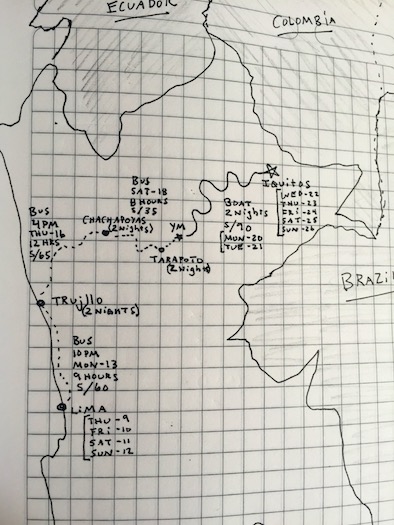 ECUADOR
COLOMBIA
Bus
SAT-18
8 HOURS
S/35
IQUITOS
WED-22
THU-23
FRI-24
SAT-25
SUN-26
BOAT
2 Nights
S/90
MON-20
TUE-21
Bus
4PM
THU-16
12 HRS
S/65
CHACHAPOYAS
(2 Nights)
YM
TARAPOTO
(2 Nights)
BRAZIL
TRUJILLO
(2 NIGHTS)
BUS
10 PM
MON-13
9 HOURS
S/60
LIMA
THU-9
FRI-10
SAT-11
SUN-12